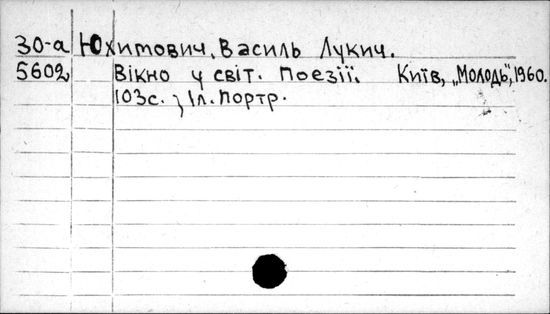 30-а Юхимович, Василь Лукич.
5602 Вікно у світ. Поезії. Київ, „Молодь", 1960.
103с. ; 1л. портр.